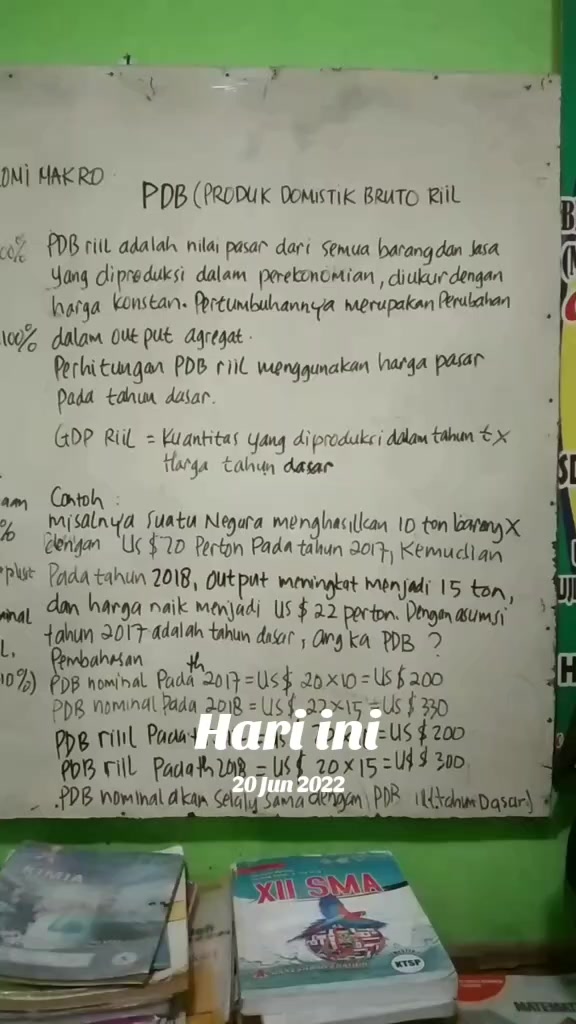 OMI MAKRO
PDB (PRODUK DOMISTIK BRUTO RIIL
00%
PDB riil adalah nilai pasar dari semua barang dan Jasa
yang diproduksi dalam perekonomian, diukur dengan
harga konstan. Pertumbuhannya merupakan Perubahan
100%
dalam output agregat.
Perhitungan PDB riil menggunakan harga pasar
pada tahun dasar.
GDP RiiL = Kuantitas yang diproduksi dalam tahun t x
Harga tahun dasar
aan
Contoh :
misalnya Suatu Negara menghasilkan 10 ton barang X
%
dengan US $ 20 Perton Pada tahun 2017, Kemudian
Pada tahun 2018, output meningkat menjadi 15 ton,
dan harga naik menjadi US $ 22 perton. Dengan asumsi
minal
tahun 2017 adalah tahun dasar, angka PDB ?
L.
Pembahasan
10%)
PDB nominal Pada th 2017 = US $ 20 x 10 = US $ 200
PDB nominal Pada 2018 = US $ 22 x 15 = US $ 330
PDB riiil Pada = US $ 200
PDB riil Pada th 2018 = US $ 20 x 15 = US $ 300
.PDB nominal akan selalu sama dengan PDB (tahun Dasar)
Hari ini
20 Jun 2022
KIMIA
XII SMA
KTSP
MATEMAT